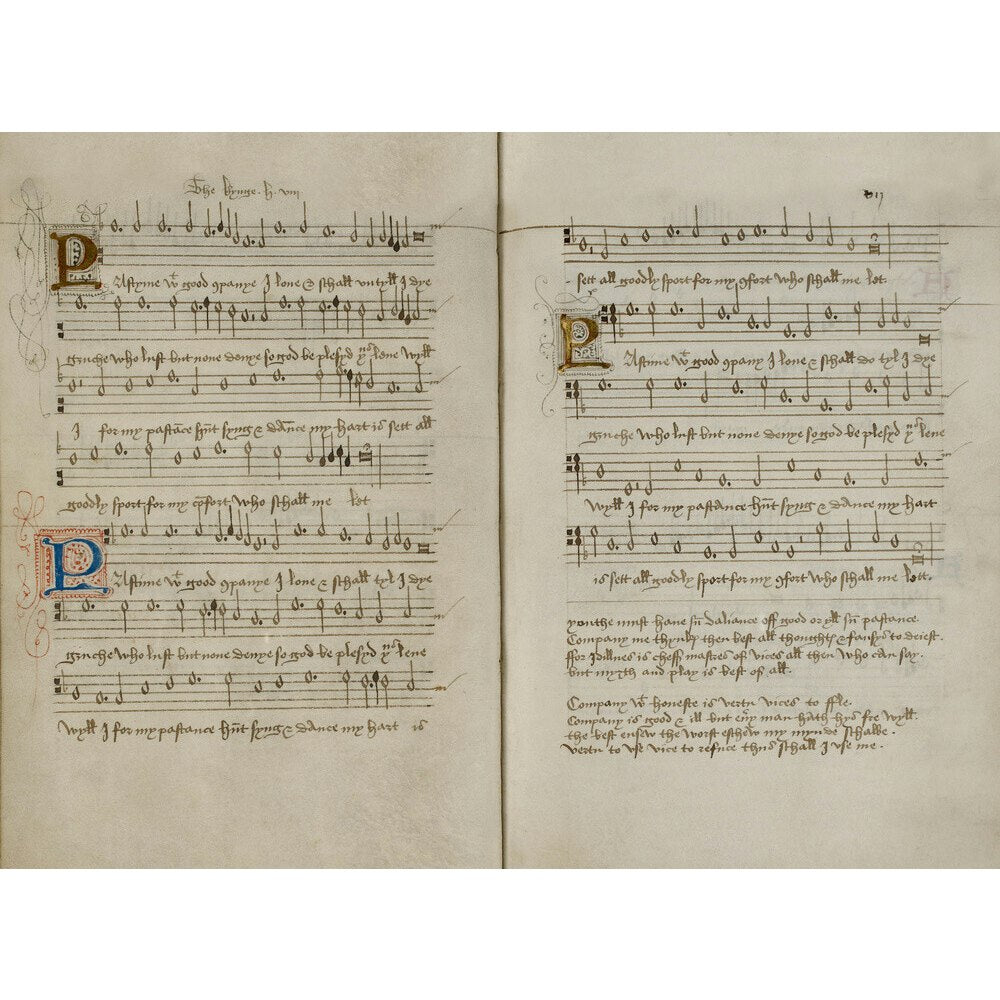 The kynge .h. viii
PAstyme wt good 9panye I loue & schall vntyll I dye
gruche who lust but none denye so god be plesyd þus leue wyll
I for my pastāce hūt syng & dāce my hart is sett all
goodly sport for my cōfort who schall me let
PAstime wt good 9panye I loue & schall tyl I dye
gruche who lust but none denye so god be plesyd þus leue
wyll I for my pastance hūt syng & dance my hart is
sett all goodly sport for my 9fort who schall me let.
PAstime wt good 9pany I loue & schall do tyl I dye
gruche who lust but none denye so god be plesyd þus leue
wyll I for my pastance hūt syng & dance my hart
is sett all goodly sport for my 9fort who schall me lett.
youthe must haue sū daliance off good or yll sū pastance.
Company me thynkes then best all thoughts & fansys to deiest.
ffor Idillnes is cheff mastres of vices all then who can say.
but myrth and play is best of all.
Company wt honeste is vertu vices to ffle.
Company is good & ill but eūy man hath hys fre wyll.
the best ensew the worst eschew my mynde schalbe.
vertu to vse vice to refuce thus schall I vse me.